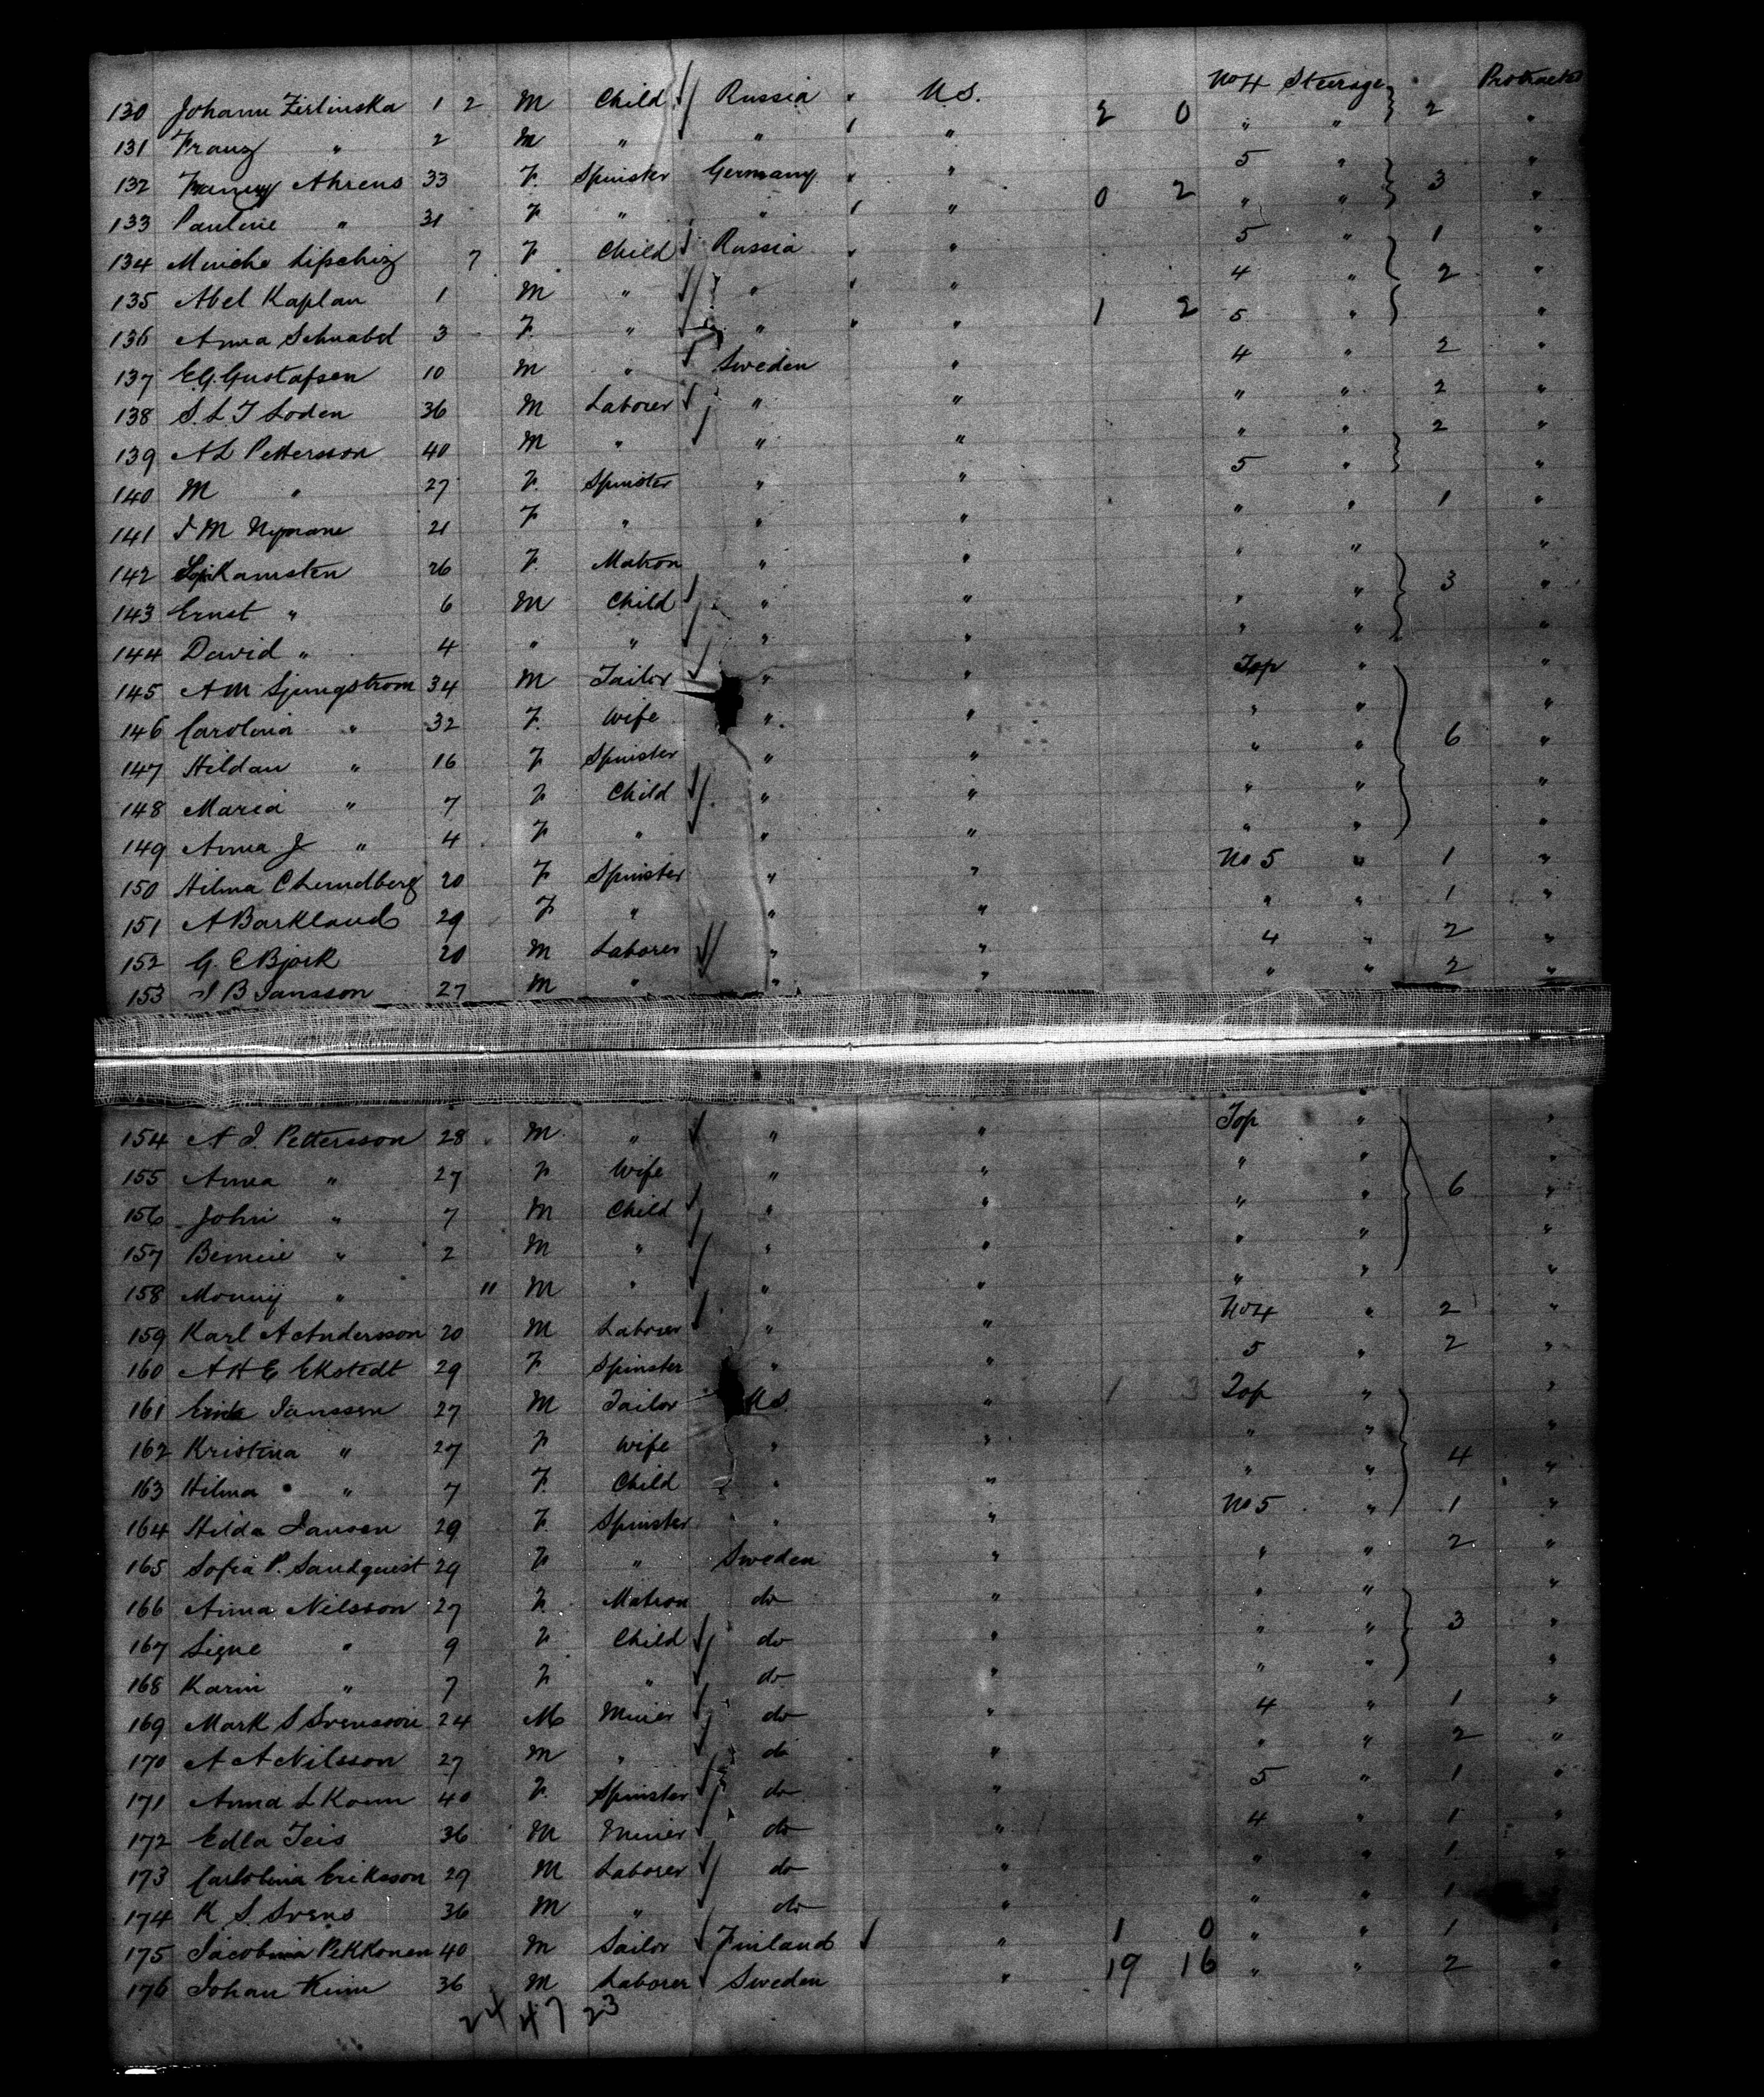 130 Johann Zirlinska 1 2 M Child Russia U.S. 2 0 No 4 Steerage 2 Protracted
131 Franz " 2 M " " " " "
132 Fanny Ahrens 33 F. Spinster Germany " 5 " 3 "
133 Pauline " 31 F " " " 0 2 " " "
134 Miriche Lipschiz 7 F Child Russia " 5 " 1 "
135 Abel Kaplan 1 M " " " 4 " 2 "
136 Anna Schnabel 3 F. " " " 1 2 5 " "
137 E.G. Gustafsen 10 M " Sweden " 4 " 2 "
138 S. L. T Loden 36 M Laborer " " " " 2 "
139 A L Pettersson 40 M " " " " " 2 "
140 M " 27 F. Spinster " " 5 " "
141 I M Nymane 21 F " " " " " 1 "
142 Kamsten 26 F. Matron " " " " "
143 Ernst " 6 M Child " " " " 3 "
144 David " 4 " " " " " " "
145 A M Sjungstrom 34 M Tailor " " Top " "
146 Carolina " 32 F. Wife " " " " "
147 Hildan " 16 F Spinster " " " " 6 "
148 Maria " 7 F Child " " " " "
149 Anna J " 4 F " " " " " "
150 Hilma C Lundberg 20 F Spinster " " No 5 " 1 "
151 A Barkland 29 F " " " " " 1 "
152 G. E Bjork 20 M Laborer " " 4 " 2 "
153 I B Jansson 27 M " " " " " 2 "
154 A. J. Pettersson 28 M " " " Top " "
155 Anna " 27 F Wife " " " " "
156 John " 7 M Child " " " " 6 "
157 Bennie " 2 M " " " " " "
158 Monny " 11 M " " " " " "
159 Karl A Andersson 20 M Laborer " " No 4 " 2 "
160 A H E Ekstedt 29 F Spinster " " 5 " 2 "
161 Janssen 27 M Tailor U.S. " 1 3 Top " "
162 Kristina " 27 F Wife " " " " "
163 Hilma " 7 F. Child " " " " 4 "
164 Hilda Jansen 29 F. Spinster " " No 5 " 1 "
165 Sofia P. Sandquist 29 F " Sweden " " " 2 "
166 Anna Nilsson 27 F Matron do " " " "
167 Signe " 9 F Child do " " " 3 "
168 Karin " 7 F " do " " " "
169 Mark S Svensson 24 M Miner do " 4 " 1 "
170 A A Nilsson 27 M " do " " " 2 "
171 Anna L Konn 40 F. Spinster do " 5 " 1 "
172 Edla Teis 36 M Miner do " 4 " 1 "
173 Carlolina Eriksson 29 M Laborer do " " " 1 "
174 K. S. Svens 36 M " do " " " 1 "
175 Jacobinia Pekkonen 40 M Sailor Finland " 1 0 " " 1 "
176 Johan Kinn 36 M Laborer Sweden " 19 16 " " 2 "
24 47 23